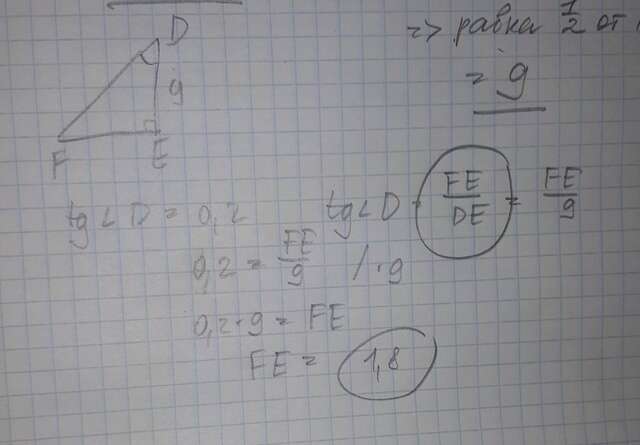 => равна 1/2 от
= 9
D
9
F E
tg∠D = 0,2
tg∠D = FE/DE = FE/9
0,2 = FE/9 / · 9
0,2 · 9 = FE
FE = 1,8